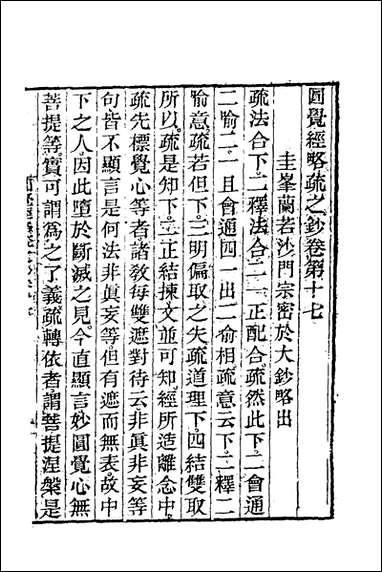 圓覺經略疏之鈔卷第十七
圭峯蘭若沙門宗密於大鈔略出
疏法合下二釋法合二一正配合疏然此下二會通
二喻二一且會通四一出二喻相疏意云下二釋二
喻意疏若但下三明偏取之失疏道理下四結雙取
所以疏是知下二正結揀文並可知經所造離念中
疏先標覺心等者諸教每雙遮對待云非眞非妄等
句皆不顯言是何法非眞妄等但有遮而無表故中
下之人因此墮於斷滅之見今直顯言妙圓覺心無
菩提等實可謂爲之了義疏轉依者謂菩提涅槃是